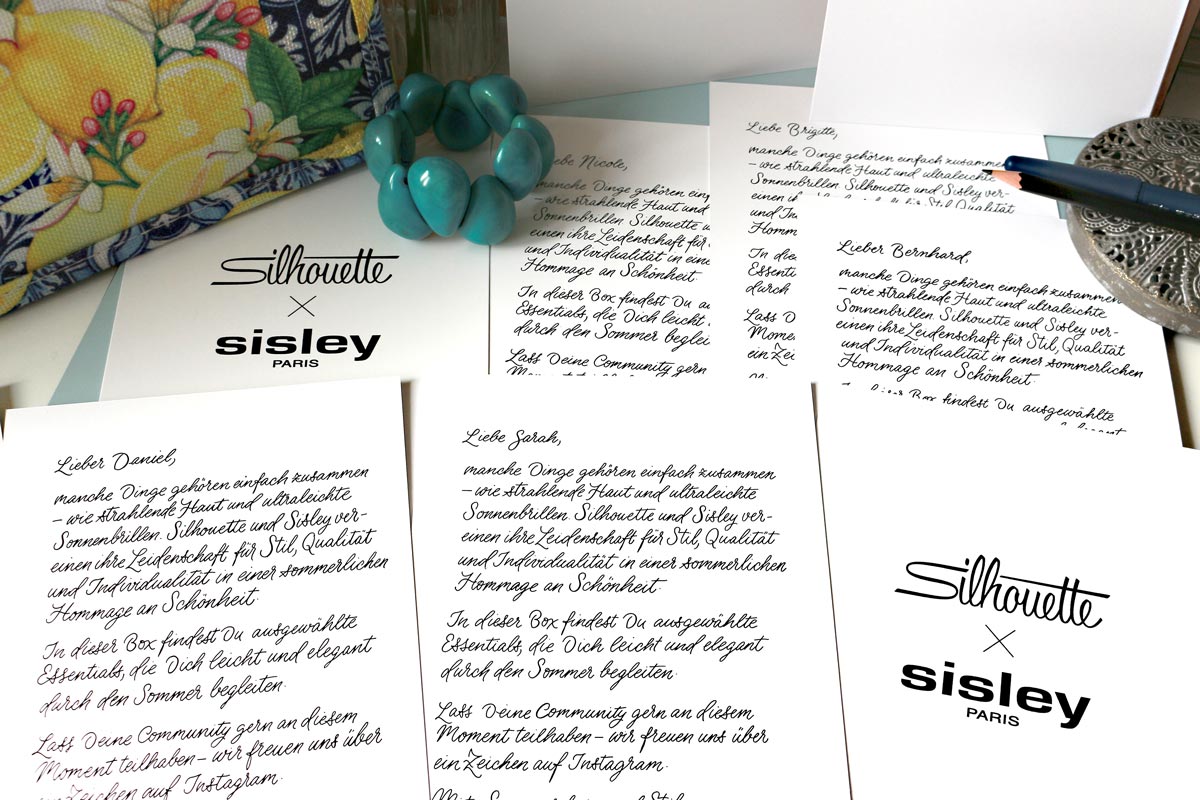 Silhouette
×
sisley
PARIS
Liebe Nicole,
manche Dinge gehören
– wie strahlende Haut und
Sonnenbrillen. Silhouette
einen ihre Leidenschaft für
und Individualität in
Hommage an Schönheit.
In dieser Box findest Du
Essentials, die Dich leicht
durch den Sommer
Lass Deine Community gern
Moment teilhaben –
Liebe Brigitte,
manche Dinge gehören einfach zusammen
– wie strahlende Haut und ultraleichte
Sonnenbrillen. Silhouette und Sisley ver-
einen
Qualität
und
In
durch
Lass
ein
Lieber Bernhard,
manche Dinge gehören einfach zusammen
– wie strahlende Haut und ultraleichte
Sonnenbrillen. Silhouette und Sisley ver-
einen ihre Leidenschaft für Stil, Qualität
und Individualität in einer sommerlichen
Hommage an Schönheit.
In dieser Box findest Du ausgewählte
Lieber Daniel,
manche Dinge gehören einfach zusammen
– wie strahlende Haut und ultraleichte
Sonnenbrillen. Silhouette und Sisley ver-
einen ihre Leidenschaft für Stil, Qualität
und Individualität in einer sommerlichen
Hommage an Schönheit.
In dieser Box findest Du ausgewählte
Essentials, die Dich leicht und elegant
durch den Sommer begleiten.
Lass Deine Community gern an diesem
Moment teilhaben – wir freuen uns über
ein Zeichen auf Instagram.
Liebe Sarah,
manche Dinge gehören einfach zusammen
– wie strahlende Haut und ultraleichte
Sonnenbrillen. Silhouette und Sisley ver-
einen ihre Leidenschaft für Stil, Qualität
und Individualität in einer sommerlichen
Hommage an Schönheit.
In dieser Box findest Du ausgewählte
Essentials, die Dich leicht und elegant
durch den Sommer begleiten.
Lass Deine Community gern an diesem
Moment teilhaben – wir freuen uns über
ein Zeichen auf Instagram.
Silhouette
×
sisley
PARIS